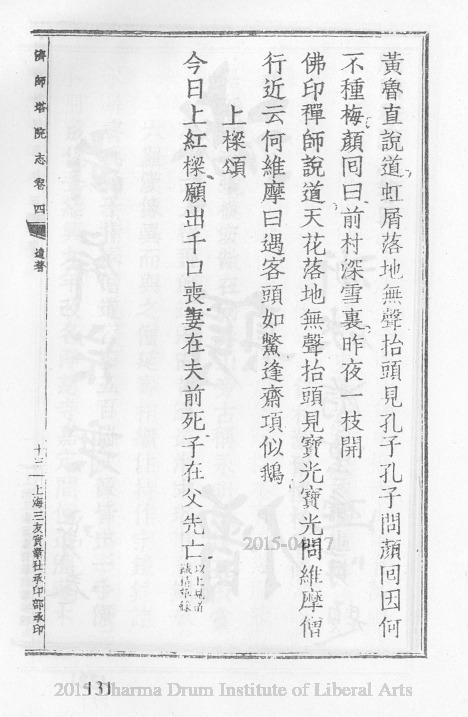 黃魯直說道虹屑落地無聲抬頭見孔子孔子問顏回因何
不種梅顏回曰前村深雪裏昨夜一枝開
佛印禪師說道天花落地無聲抬頭見寶光寶光問維摩僧
行近云何維摩曰遇客頭如鱉逢齋項似鵝
上樑頌
今日上紅樑願出千口喪妻在夫前死子在父先亡
濟師塔院志卷四
遺著
上海三友實業社承印部承印
2015-04-17
131
2015 Dharma Drum Institute of Liberal Arts